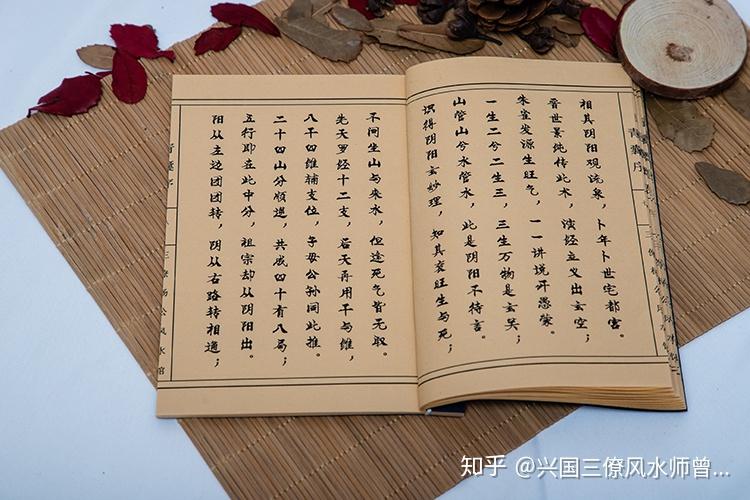 青囊序
相其阴阳观流泉，卜年卜世宅都宫。
晋世景纯传此术，演经立义出玄空；
朱雀发源生旺气，一一讲说开愚蒙。
一生二兮二生三，三生万物是玄关；
山管山兮水管水，此是阴阳不待言。
识得阴阳玄妙理，知其衰旺生与死；
不问坐山与来水，但逢死气皆无取。
先天罗经十二支，后天再用干与维，
八干四维辅支位，子母公孙同此推。
二十四山分顺逆，共成四十有八局；
五行即在此中分，祖宗却从阴阳出。
阳从左边团团转，阴从右路转相通；
青囊序
三僚杨公风水馆
知乎 @兴国三僚风水师曾...